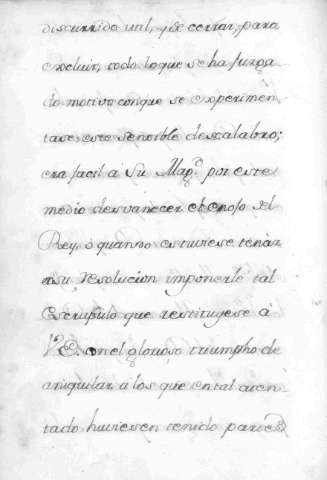 discurrido util, q̃ de cerrar, para
excluir, todo lo que se ha juzga
do motivo conque se experimen
tase este sensible descalabro;
era facil á Su Mag.d por este
medio desvanecer el enojo del
Rey, ó quanno estuviese tenàz
en su, resolucion imponerle tal
escrupulo que restituyese á
V.E. en el glorioso triumpho de
aniquilar à los que en tal aten-
tado huviesen tenido parte